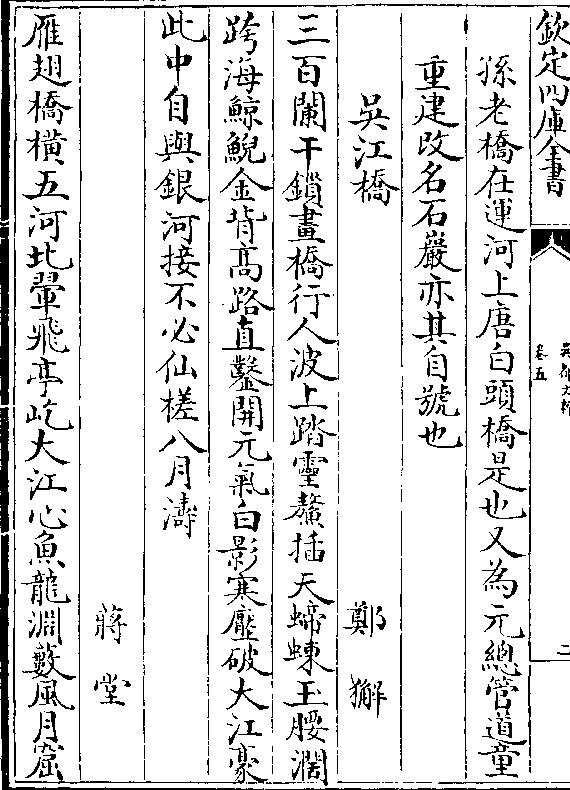 欽定四庫全書
吳都文粹
卷五
二
孫老橋在運河上唐白頭橋是也又為元總管道童
重建改名石巖亦其自號也
吳江橋
鄭獬
三百闌干鎖畫橋行人波上踏靈鰲插天螮蝀玉腰濶
跨海鯨鯢金背高路直鑿開元氣白影寒壓破大江豪
此中自與銀河接不必仙槎八月濤
蔣堂
雁翅橋橫五河北翬飛亭屹大江心魚龍淵藪風月窟